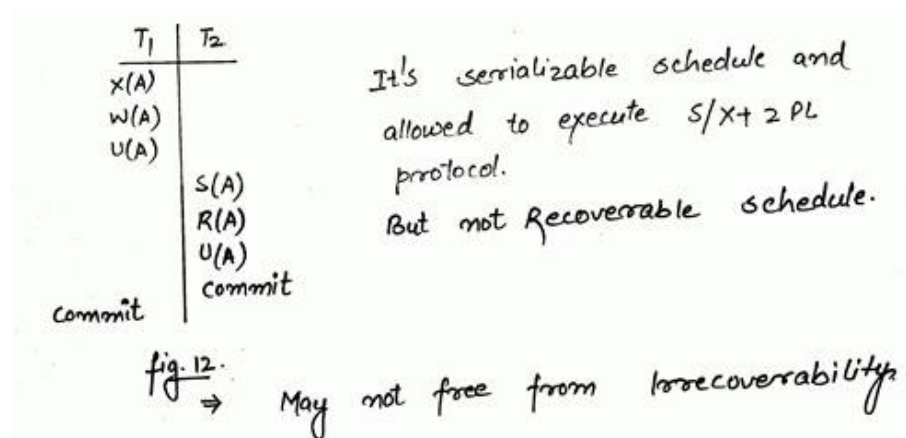 T1 T2
X(A)
W(A)
U(A)
S(A)
R(A)
U(A)
Commit
Commit
It's serializable schedule and
allowed to execute S/X+ 2 PL
protocol.
But not Recoverable schedule.
fig. 12.
⇒ May not free from Irrecoverability.